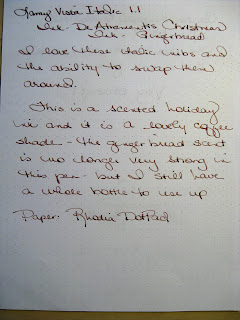 Lamy Vista Italic 1.1
Ink - DeAtramentis Christmas
Ink - Gingerbread
I love these italic nibs and
the ability to swap them
around.
This is a scented holiday
ink and it is a lovely coffee
shade - the gingerbread scent
is no longer very strong in
this pen - but I still have
a whole bottle to use up
Paper: Rhodia DotPad